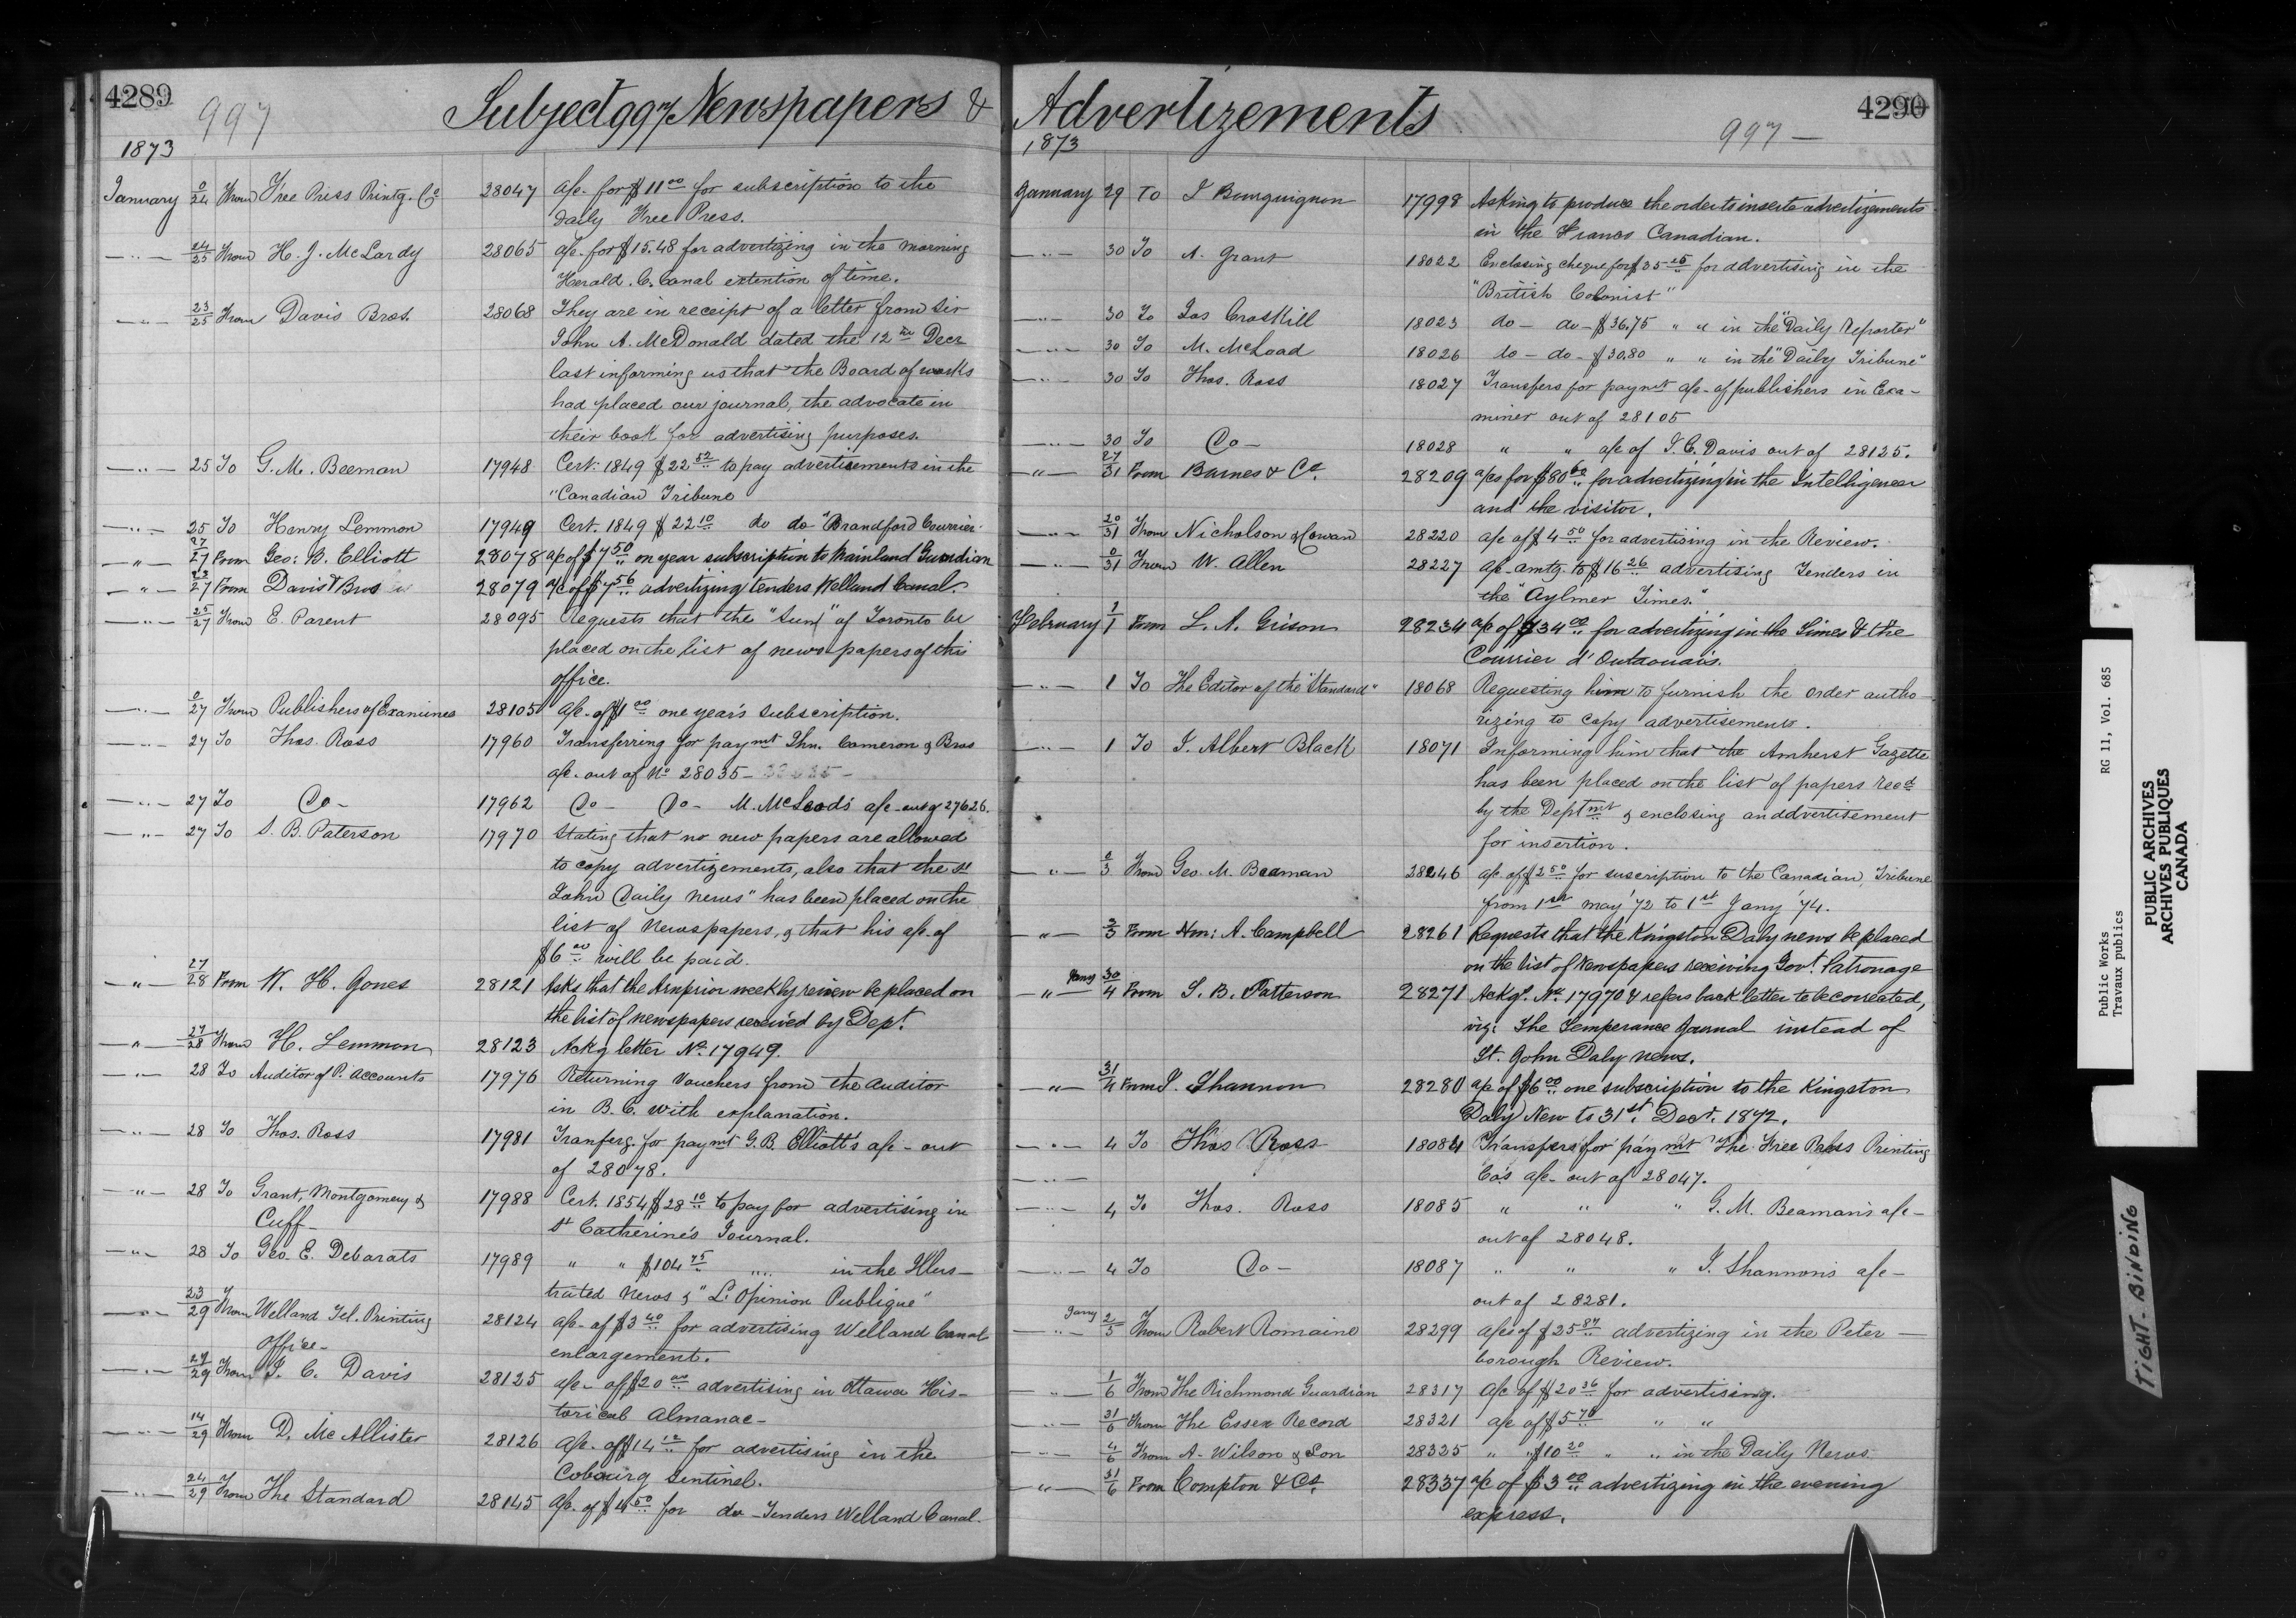 4289
997
Subject 997 Newspapers &
1873
January 0/24 From Free Press Printg. Co. 28047 a/c. for $11.00 for subscription to the
daily Free Press.
—„— 24/25 From H. J. McLardy 28065 a/c. for $15.48 for advertizing in the morning
Herald. C. Canal extention of time.
—„— 23/25 From Davis Bros. 28068 They are in receipt of a letter from Sir
John A. McDonald dated the 12th Decr
last informing us that the Board of works
had placed our journal, the advocate in
their book for advertising purposes.
—„— 25 To G. M. Beeman 17948 Cert: 1849 $22.52 to pay advertisements in the
"Canadian Tribune
—„— 25 To Henry Lemmon 17949 Cert. 1849 $22.10 do do "Brandford Courrier.
—„— 27/27 From Geo: B. Elliott 28078 a/c of $7.50 on year subscription to Mainland Guardian
—„— 23/27 From Davis & Bros 28079 a/c of $7.56 advertizing tenders Welland Canal.
—„— 25/27 From E. Parent 28095 Requests that the "Sun" of Toronto be
placed on the list of news papers of this
office.
—„— 0/27 From Publishers of Examiner 28105 a/c. of $1.00 one year's subscription.
—„— 27 To Thos. Ross 17960 Transferring for paymt Jhn. Cameron & Bros
a/c. out of No 28035 —
—„— 27 To Do — 17962 Do — Do — M. McLeod's a/c — out of 27626.
—„— 27 To S. B. Paterson 17970 Stating that no new papers are allowed
to copy advertizements, also that the St
John Daily News" has been placed on the
list of Newspapers, & that his a/c. of
$6.00 will be paid.
—„— 27/28 From W. H. Jones 28121 Asks that the Arnprior weekly review be placed on
the list of newspapers received by Dept.
—„— 27/28 From H. Lemmon 28123 Ackg letter No. 17949.
—„— 28 To Auditor of P. Accounts 17976 Returning Vouchers from the Auditor
in B. C. with explanation.
—„— 28 To Thos. Ross 17981 Tranferg. for paymt G. B. Elliott's a/c — out
of 28078.
—„— 28 To Grant, Montgomery & 17988 Cert. 1854 $28.10 to pay for advertising in
Cuff — St Catherine's Journal.
—„— 28 To Geo. E. Debarats 17989 " " $104.75 " " in the Illus—
trated News & "L'Opinion Publique"
—„— 23/29 From Welland Tel. Printing 28124 a/c — of $3.40 for advertising Welland Canal
Office — enlargement.
—„— 29 From J. C. Davis 28125 a/c — of $20.00 advertising in Ottawa His—
torical Almanac —
—„— 14/29 From D. McAllister 28126 a/c — of $14.12 for advertising in the
Cobourg Sentinel.
—„— 24/29 From The Standard 28145 a/c. of $4.50 for do — Tenders Welland Canal.
4290
Advertizements
997 —
1873
January 29 To J Bourguignon 17998 Asking to produce the order to inserte advertizements
in the Franco Canadian.
—„— 30 To A. Grant 18022 Enclosing cheque for $35.25 for advertising in the
"British Colonist"
—„— 30 To Jas Croskill 18023 do — do — $36.75 " " in the "Daily Reporter"
—„— 30 To M. McLoad 18026 do — do — $30.80 " " in the "Daily Tribune"
—„— 30 To Thos. Ross 18027 Transfers for paymt a/c — of publishers in Exa—
miner out of 28105
—„— 30 To Do — 18028 " " a/c of J. C. Davis out of 28125.
—„— 27/31 From Barnes & Co. 28209 a/cs for $80.60 for advertizing in the Intelligencer
and the visitor.
—„— 20/31 From Nicholson & Cowan 28220 a/c of $4.50 for advertising in the Review.
—„— 0/31 From W. Allen 28227 a/c — amtg. to $16.26 advertising Tenders in
the "Aylmer Times."
February 1/1 From L. A. Grison 28234 a/c of $34.00 for advertizing in the Times & the
Courrier d'Outaouais.
—„— 1 To The Editor of the "Standard" 18068 Requesting him to furnish the order autho—
rizing to copy advertisements.
—„— 1 To J. Albert Black 18071 Informing him that the Amherst Gazette
has been placed on the list of papers recd
by the Deptmt & enclosing an advertisement
for insertion.
—„— 0/3 From Geo. M. Beaman 28246 a/c. of $2.50 for suscription to the Canadian Tribune
from 1st may '72 to 1st Jany '74.
—„— 3/3 From Hon: A. Campbell 28261 Requests that the Kingston Daly news be placed
on the list of Newspapers receiving Govt. Patronage
—„— Jany 30/4 From S. B. Patterson 28271 Ackgs. No. 17970 & refers back letter to be corrected,
viz: The Temperance Journal instead of
St. John Daly news.
—„— 31/4 From J. Shannon 28280 a/c of $6.00 one subscription to the Kingston
Daly New to 31st. Decr. 1872.
—„— 4 To Thos Ross 18084 Transfers for paymt The Free Press Printing
—„— Co's a/c — out of 28047.
—„— 4 To Thos. Ross 18085 " " " G. M. Beaman's a/c —
out of 28048.
—„— 4 To Do — 18087 " " " J. Shannon's a/c —
out of 28281.
—„— Jany 2/5 From Robert Romaine 28299 a/cs of $25.87 advertizing in the Peter—
borough Review.
—„— 1/6 From The Richmond Guardian 28317 a/c of $20.36 for advertising.
—„— 31/6 From The Essex Record 28321 a/c of $5.76 " "
—„— 4/6 From A. Wilson & Son 28325 " " $10.20 " " in the Daily News.
—„— 31/6 From Compton & Co. 28337 a/c of $3.00 advertizing in the evening
express.
Public Works
Travaux publics
RG 11, Vol. 685
PUBLIC ARCHIVES
ARCHIVES PUBLIQUES
CANADA
TIGHT-BINDING